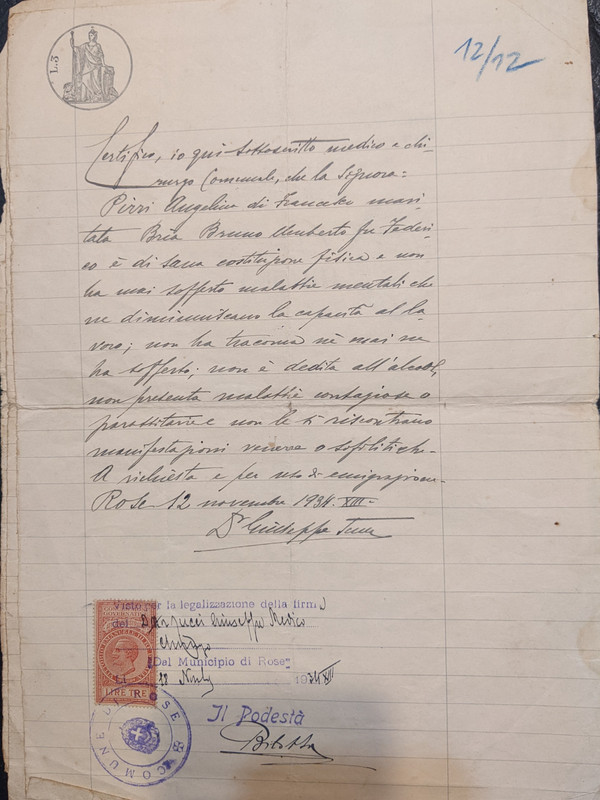 L.3
12/12
Certifico, io qui sottoscritto medico e chi-
rurgo Comunale, che la Signora:
Pirri Angelina di Francesco mari-
tata Bria Bruno Umberto fu Federi-
co è di sana costituzione fisica e non
ha mai sofferto malattie mentali che
ne diminuiscano la capacità al la-
voro; non ha tracoma nè mai ne
ha sofferto; non è dedita all'alcool,
non presenta malattie contagiose o
parassitarie e non le si riscontrano
manifestazioni veneree o sifilitiche.
A richiesta e per uso di emigrazione
Rose 12 novembre 1934. XIII.
Dr Giuseppe
Visto per la legalizzazione della firma
del Giuseppe Medico
Dal Municipio di Rose
1934 XIII
LIRE TRE
Il Podestà
COMUNE DI ROSE